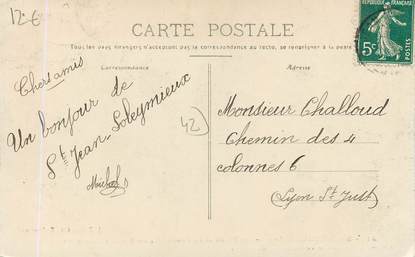 12.€
CARTE POSTALE
Tous les pays étrangers n'acceptent pas la correspondance au recto, se renseigner à la poste
Correspondance
Adresse
RÉPUBLIQUE FRANÇAISE
5c
POSTES
Chers amis
Un bonjour de
St Jean-Soleymieux
42
Monsieur Challoud
Chemin des 4
colonnes 6
Lyon St Just